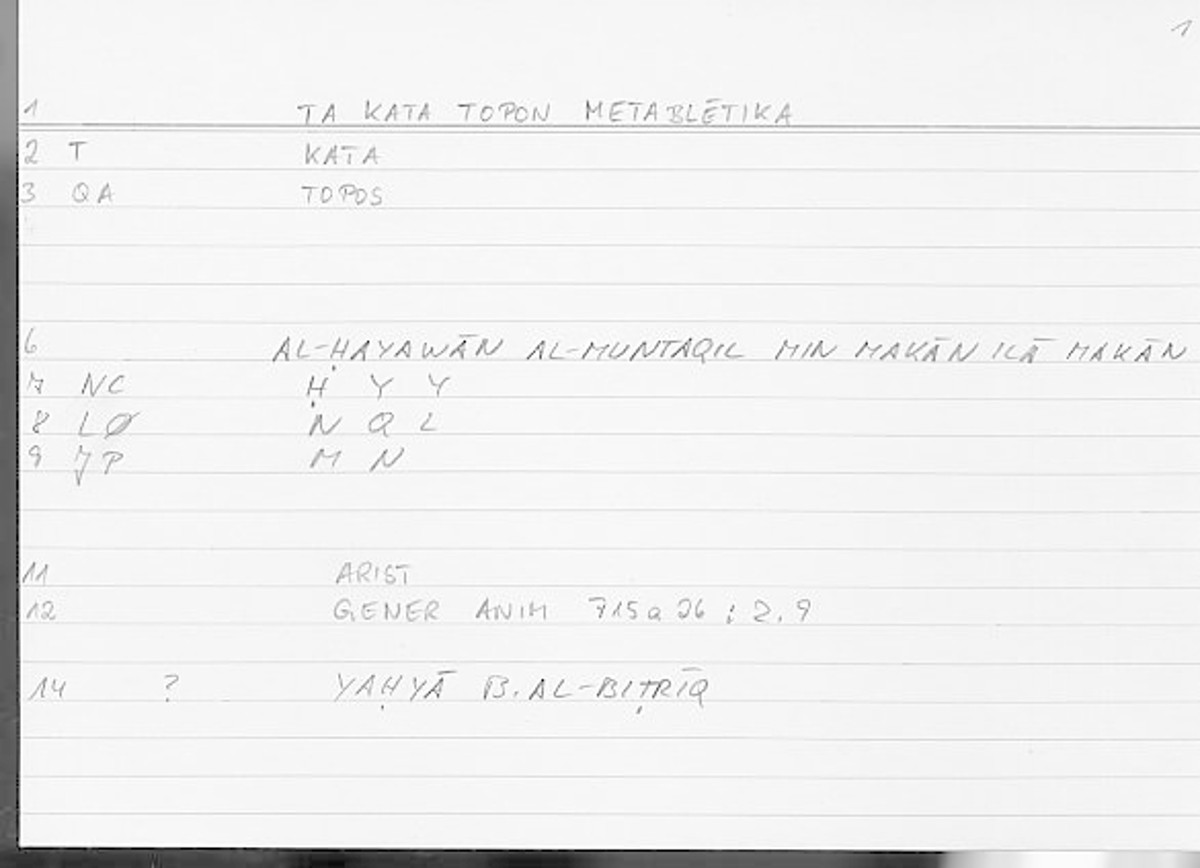 1
1 TA KATA TOPON METABLĒTIKA
2 T KATA
3 QA TOPOS
6 AL-ḤAYAWĀN AL-MUNTAQIL MIN MAKĀN ILĀ MAKĀN
7 NC Ḥ Y Y
8 LØ N Q L
9 JP M N
11 ARIST
12 GENER ANIM 715a26; 2.9
14 ? YAḤYĀ B. AL-BIṬRĪQ